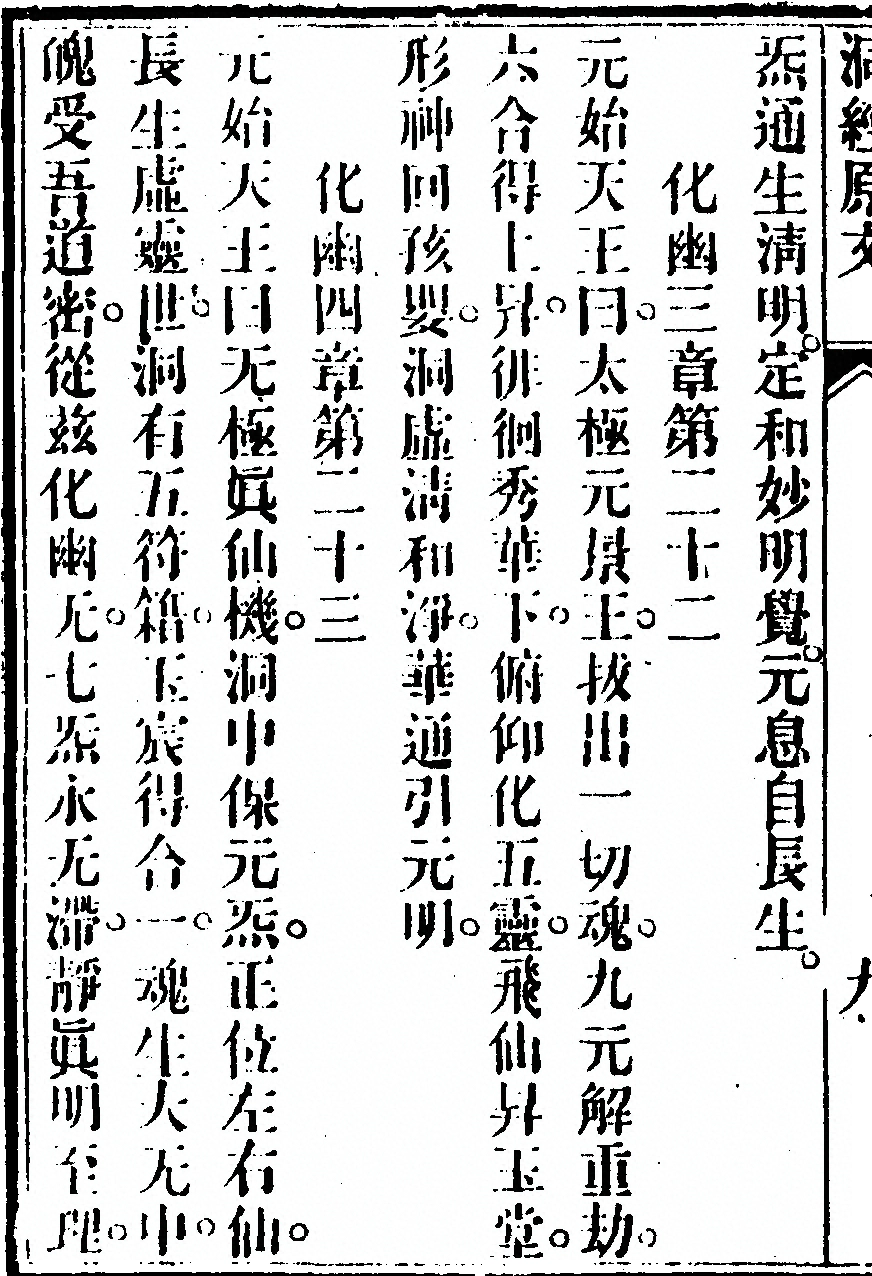 洞經原文
九
炁通生淸明。定和妙明覺。元息自長生。
化幽三章第二十二
元始天王曰。太極元景王。拔出一切魂。九元解重劫。
六合得上昇。徘徊秀華下。俯仰化五靈。飛仙昇玉堂。
形神回孩嬰。洞虛淸和淨。華通引元明。
化幽四章第二十三
元始天王曰无極眞仙機。洞中保元炁。正位左右仙。
長生虛靈世。洞有五符籍。玉宸得合一。魂生大无中。
魄受吾道密。從茲化幽无。七炁永无滯。靜眞明至理。